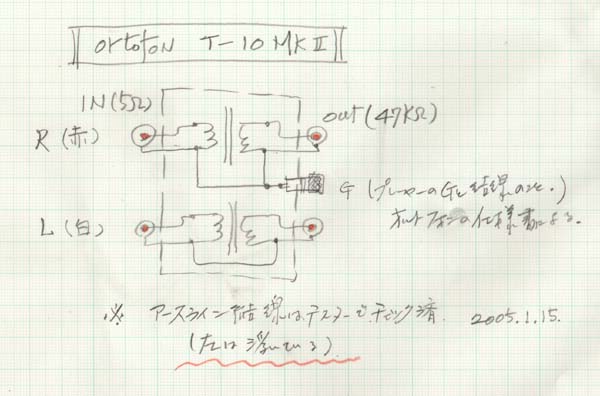 ortofon T-10 MK II
IN (5Ω)
out (47KΩ)
R (赤)
G (プレーヤーのGと結線のこと。)
オルトフォンの仕様書による。
L (白)
※ アースライン結線はテスターでチェック済. 2005.1.15.
(左は浮いている)